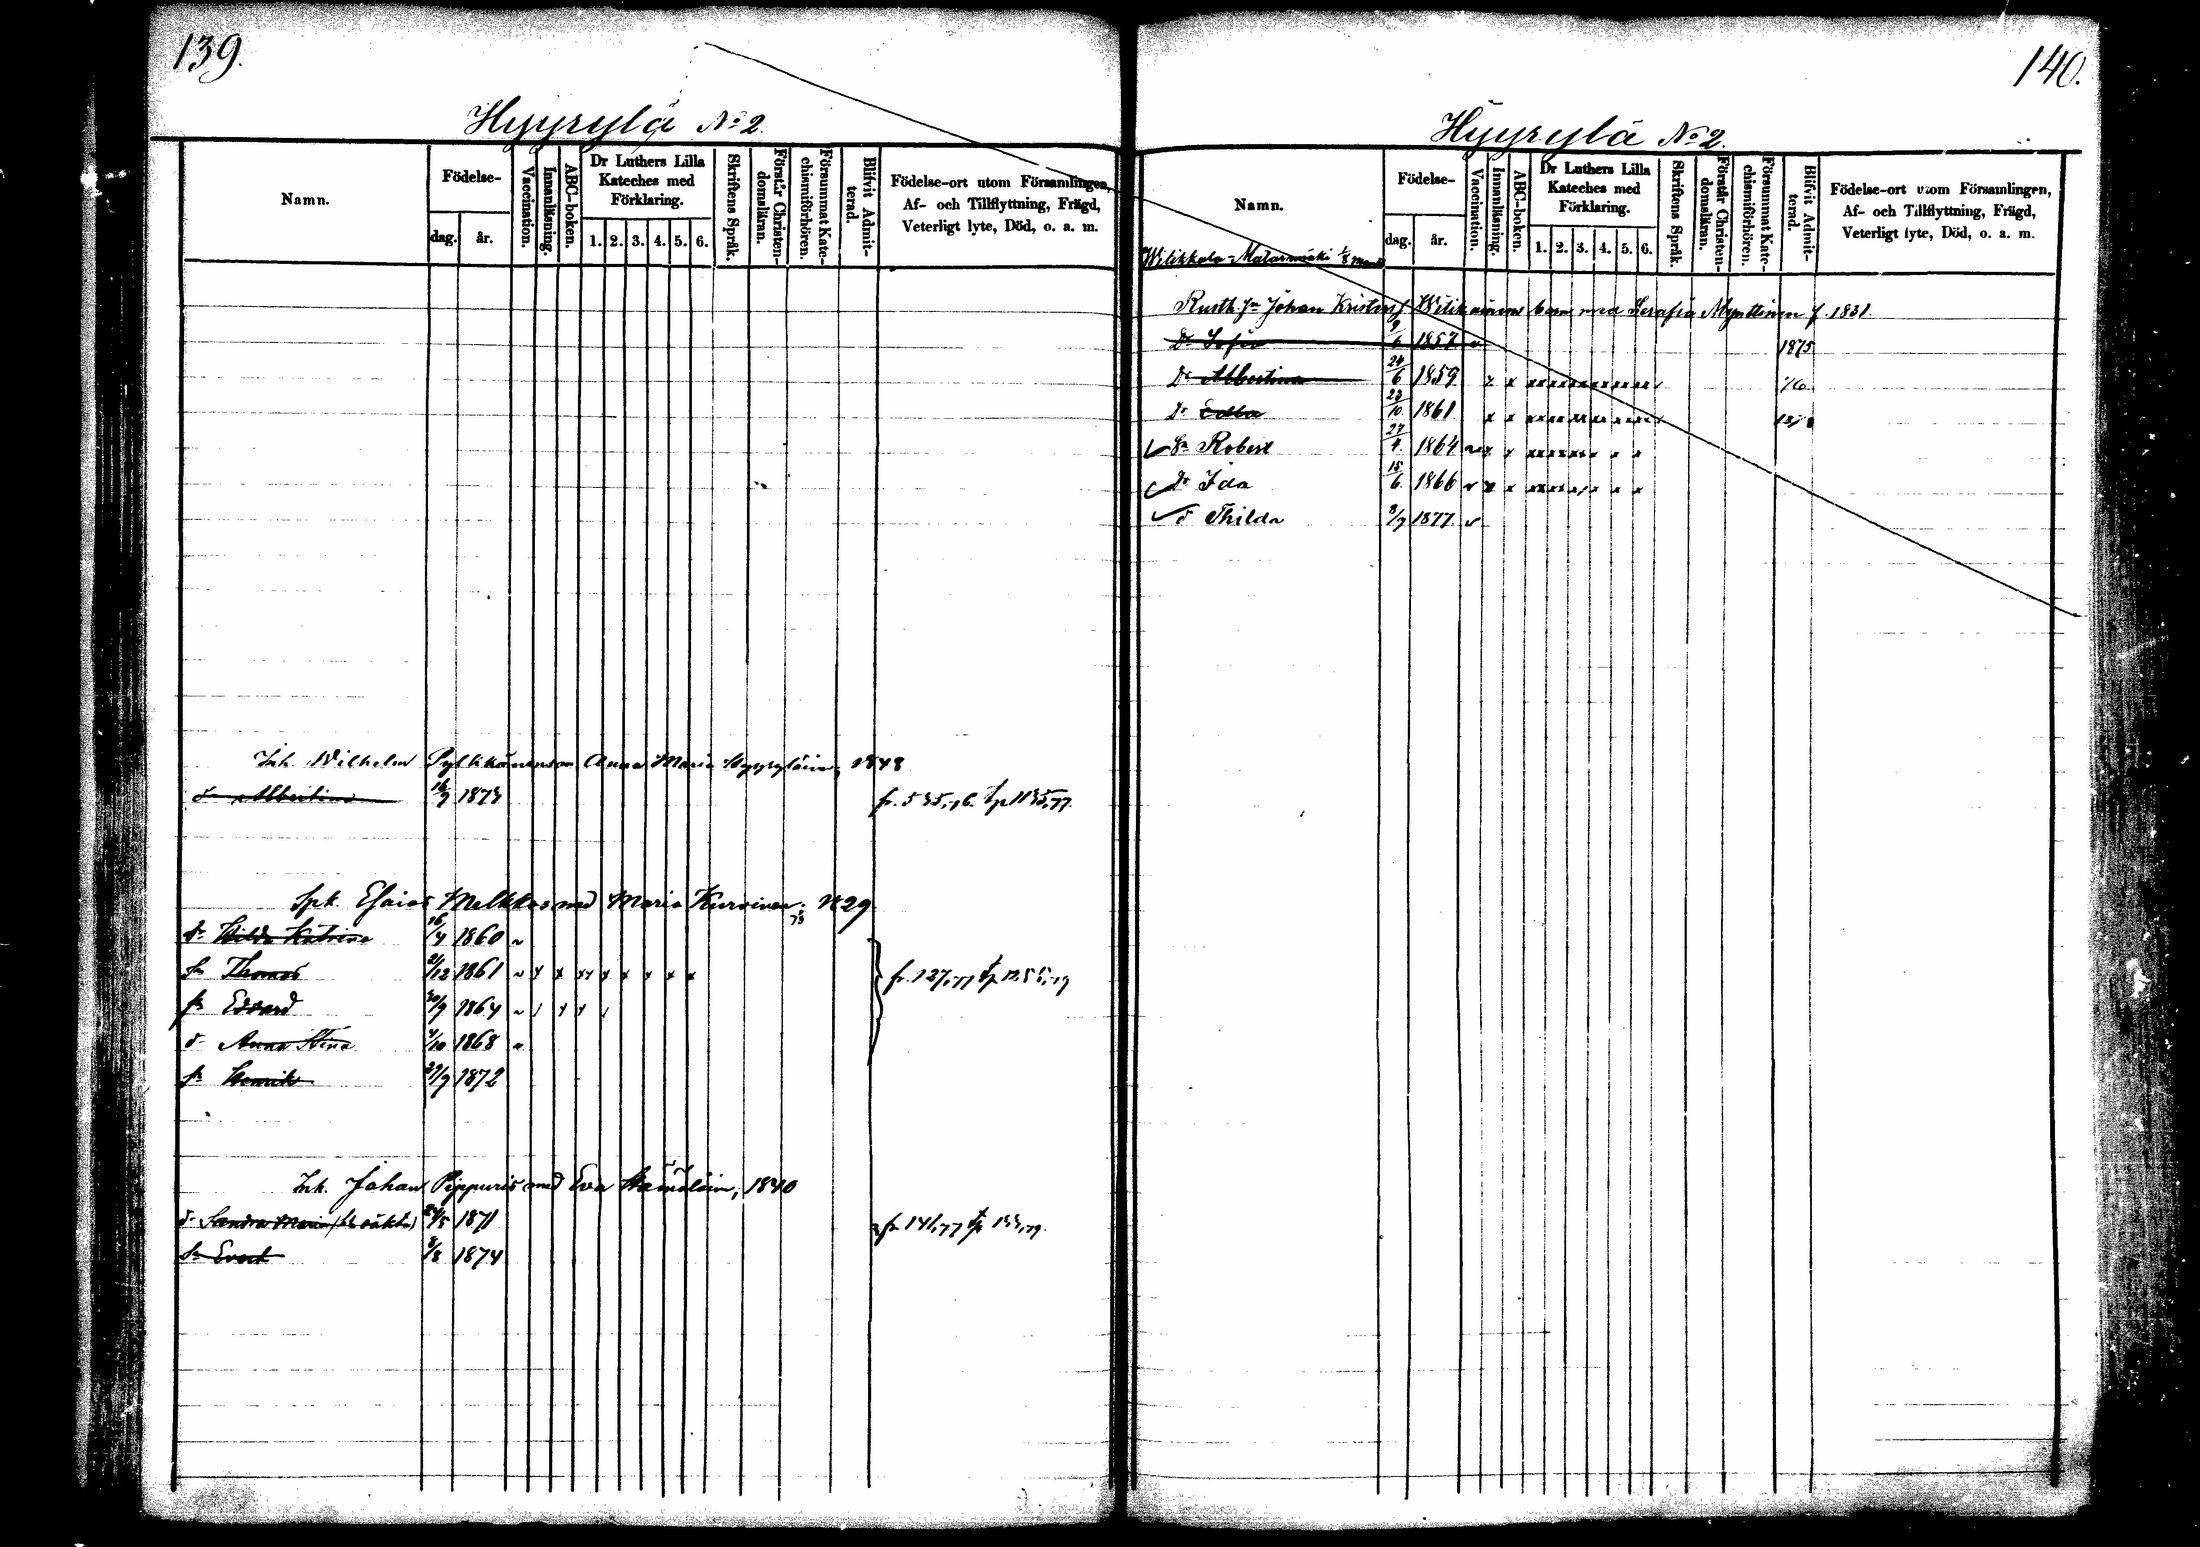 139.
Hyyrylä No 2.
Namn.
Födelse-
dag. år.
Vaccination.
Innanläsning.
ABC-boken.
Dr Luthers Lilla Kateches med Förklaring.
1. 2. 3. 4. 5. 6.
Skriftens Språk.
Förstår Christendomsläran.
Försummat Katechismiförhören.
Blifvit Admitterad.
Födelse-ort utom Församlingen,
Af- och Tillflyttning, Frägd,
Veterligt lyte, Död, o. a. m.
Inh. Wilhelm Pylkkänen Anna Maria Hyyryläin, 1848
dr Albertina 16/9 1873 fr. 535,76. tp 1135,77
Spk. Esaias Melkko med Maria Kurvinen; 1829
73
dr Hilda Katrina 16/4 1860
sn Thomas 21/12 1861 x x xx x x x x fr. 127,77 tp 1255,79
sn Edvard 30/9 1864
d Anna Stina 4/10 1868
sn Henrik 27/9 1872
Inh. Johan Pippuris med Eva Hämäläin, 1840
d Sandra Maria 24/5 1871 fr 141,77 tp 133,79
sn Evert 8/8 1874
140.
Hyyrylä No 2.
Namn.
Födelse-
dag. år.
Vaccination.
Innanläsning.
ABC-boken.
Dr Luthers Lilla Kateches med Förklaring.
1. 2. 3. 4. 5. 6.
Skriftens Språk.
Förstår Christendomsläran.
Försummat Katechismiförhören.
Blifvit Admitterad.
Födelse-ort utom Församlingen,
Af- och Tillflyttning, Frägd,
Veterligt lyte, Död, o. a. m.
Wilikkala-Matarmäki 1/8
Rusth. Johan Kristers Wilikainens barn med Serafia Mynttinen f. 1831
Dr Sofia 9/6 1857 1875
Dr Albertina 24/6 1859 x x 76
Dr Edla 23/10 1861 x x 1878
Sn Robert 27/4 1864 x x
Dr Ida 15/6 1866 x x
d Thilda 8/7 1877